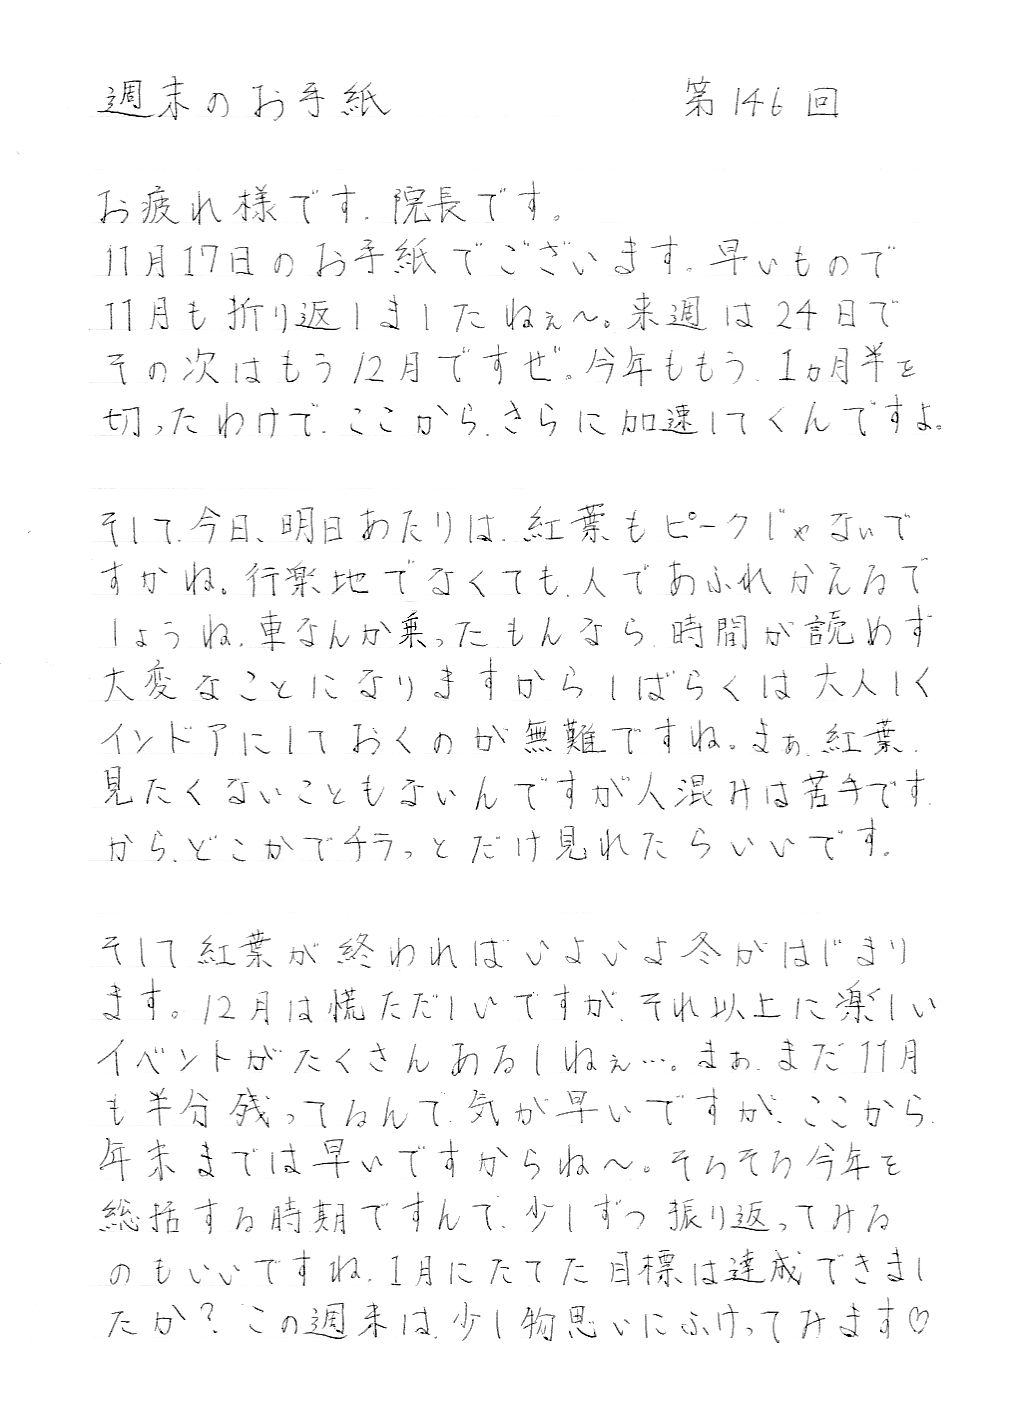 週末のお手紙 第146回
お疲れ様です、院長です。
11月17日のお手紙でございます。早いもので
11月も折り返しましたねぇ〜。来週は24日で
その次はもう12月ですぜ。今年ももう、1ヵ月半を
切ったわけで、ここから、さらに加速してくんですよ。
そして、今日、明日あたりは、紅葉もピークじゃないで
すかね。行楽地でなくても、人であふれかえるで
しょうね、車なんか乗ったもんなら、時間が読めず
大変なことになりますからしばらくは大人しく
インドアにしておくのが無難ですね。まぁ、紅葉、
見たくないこともないんですが人混みは苦手です
から、どこかでチラっとだけ見れたらいいです。
そして紅葉が終わればいよいよ冬がはじまり
ます。12月は慌ただしいですが、それ以上に楽しい
イベントがたくさんあるしねぇ…。まぁ、まだ11月
も半分残ってるんで、気が早いですが、ここから、
年末までは早いですからね〜。そろそろ今年を
総括する時期ですんで、少しずつ振り返ってみる
のもいいですね、1月にたてた目標は達成できまし
たか？この週末は、少し物思いにふけってみます♡